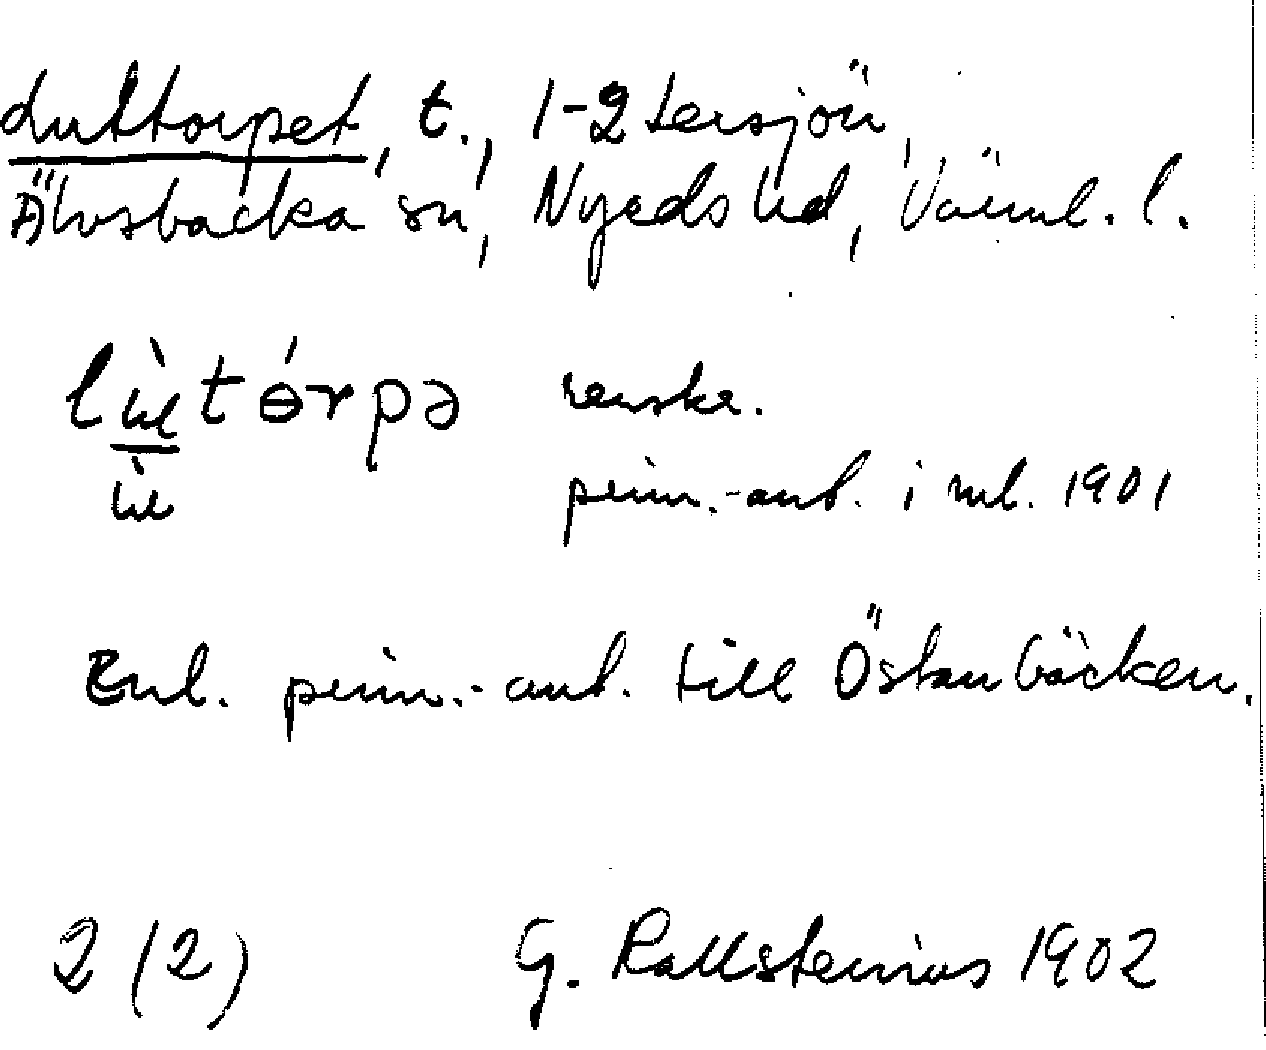 Luttorpet, t., 1-2 Lersjön,
Älvsbacka sn, Nyeds hd, Värml. l.
lùtórpə renskr.
ù prim.-uppt. i ml. 1901
Enl. prim.-uppt. till Östanbäcken.
2 (2) G. Kallstenius 1902